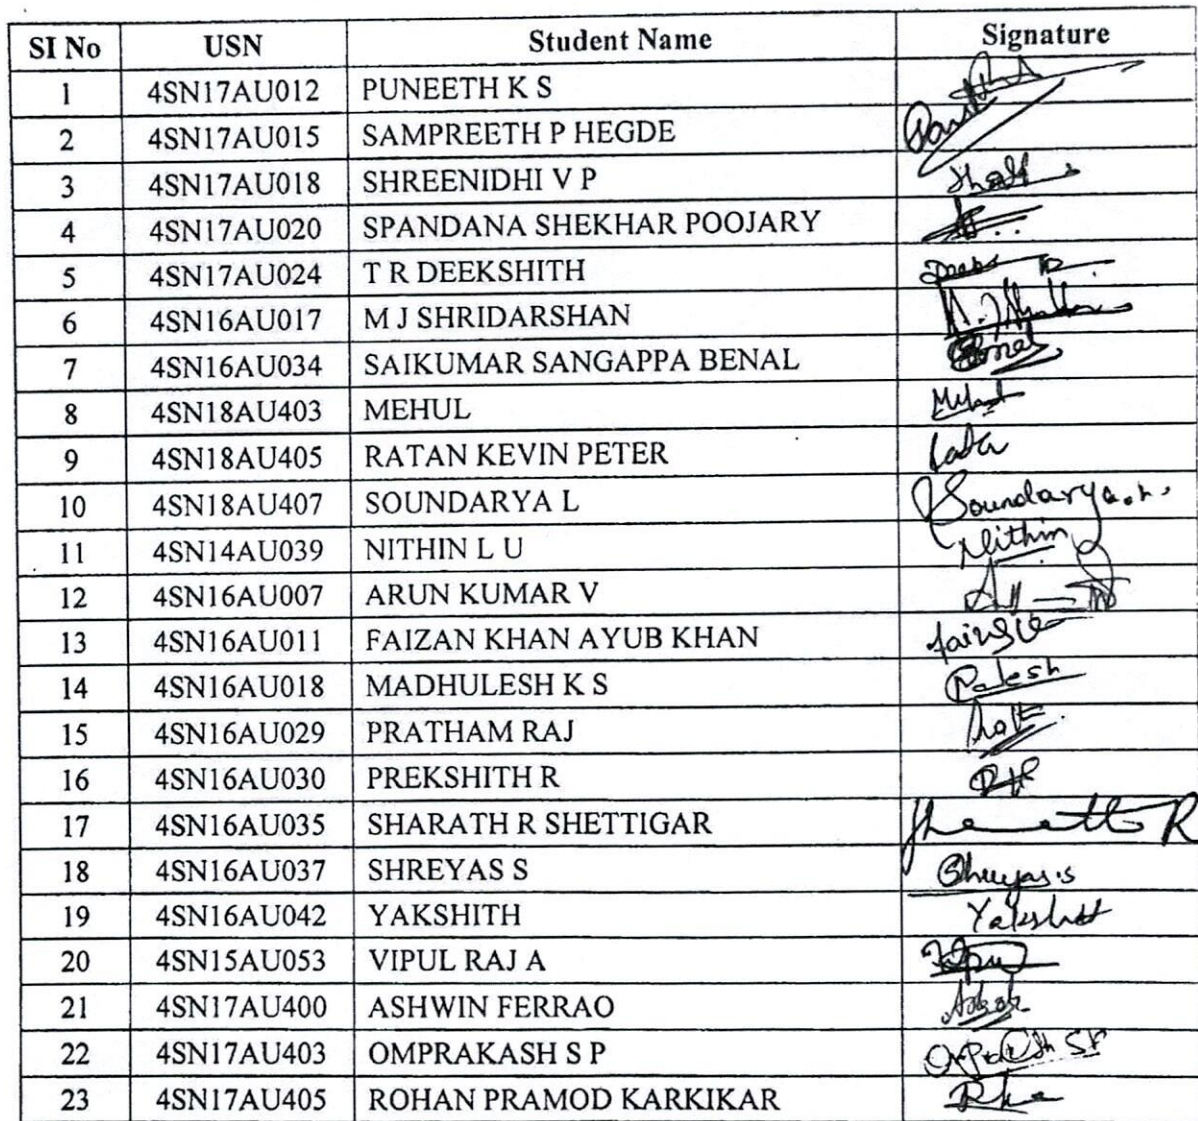 SI No USN Student Name Signature
1 4SN17AU012 PUNEETH K S
2 4SN17AU015 SAMPREETH P HEGDE
3 4SN17AU018 SHREENIDHI V P
4 4SN17AU020 SPANDANA SHEKHAR POOJARY
5 4SN17AU024 T R DEEKSHITH
6 4SN16AU017 M J SHRIDARSHAN
7 4SN16AU034 SAIKUMAR SANGAPPA BENAL
8 4SN18AU403 MEHUL
9 4SN18AU405 RATAN KEVIN PETER
10 4SN18AU407 SOUNDARYA L Soundarya.L.
11 4SN14AU039 NITHIN L U Nithin
12 4SN16AU007 ARUN KUMAR V
13 4SN16AU011 FAIZAN KHAN AYUB KHAN
14 4SN16AU018 MADHULESH K S
15 4SN16AU029 PRATHAM RAJ
16 4SN16AU030 PREKSHITH R
17 4SN16AU035 SHARATH R SHETTIGAR
18 4SN16AU037 SHREYAS S Shreyas.s
19 4SN16AU042 YAKSHITH Yakshith
20 4SN15AU053 VIPUL RAJ A
21 4SN17AU400 ASHWIN FERRAO
22 4SN17AU403 OMPRAKASH S P OmPrakash SP
23 4SN17AU405 ROHAN PRAMOD KARKIKAR